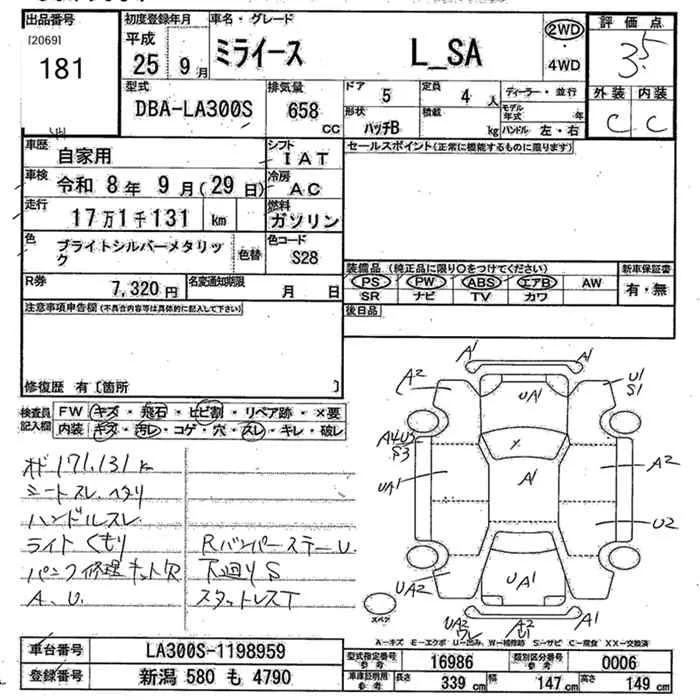 出品番号
[2069]
181
初度登録年月
平成
25 9月
車名・グレード
ミライース L_SA
2WD
4WD
評価点
3.5
外装 内装
C C
型式
DBA-LA300S
排気量
658
CC
ドア 5
定員 4 人
ディーラー・並行
形状 ハッチB
積載 kg
モデル年式 年
ハンドル 左・右
車歴 自家用
シフト IAT
セールスポイント(正常に機能するものに限ります)
車検 令和 8年 9月(29日)
冷房 AC
走行 17万1千131 km
燃料 ガソリン
色 ブライトシルバーメタリック
色替
色コード S28
R券 7,320円
名変通知期限 月 日
装備品 (純正品に限り○をつけてください)
新車保証書
PS PW ABS エアB AW
有・無
SR ナビ TV カワ
後日品
注意事項申告欄(不具合内容等は具体的に記入して下さい)
修復歴 有〔箇所 〕
検査員記入欄
FW キズ・飛石・ヒビ割・リペア跡・×要
内装 キズ・汚レ・コゲ・穴・スレ・キレ・破レ
オド 171,131 k
シートスレ、ヘタリ
ハンドルスレ
ライトくもり
パンク修理キット欠
A、U
RバンパーステーU
下廻りS
スタットレスT
A1
A1
A2
U1
S1
UA1
S3
X
A1
UA1
A2
U2
UA2
UA1
A1
UA2
ワレ
A2
U1
スペア
A-キズ E-エクボ U-凹み W-補修跡 S-サビ C-腐食 XX-交換済
車台番号 LA300S-1198959
登録番号 新潟 580 も 4790
型式指定番号 参考 16986
類別区分番号 参考 0006
車庫証明用 参考
長さ 339 cm
幅 147 cm
高さ 149 cm